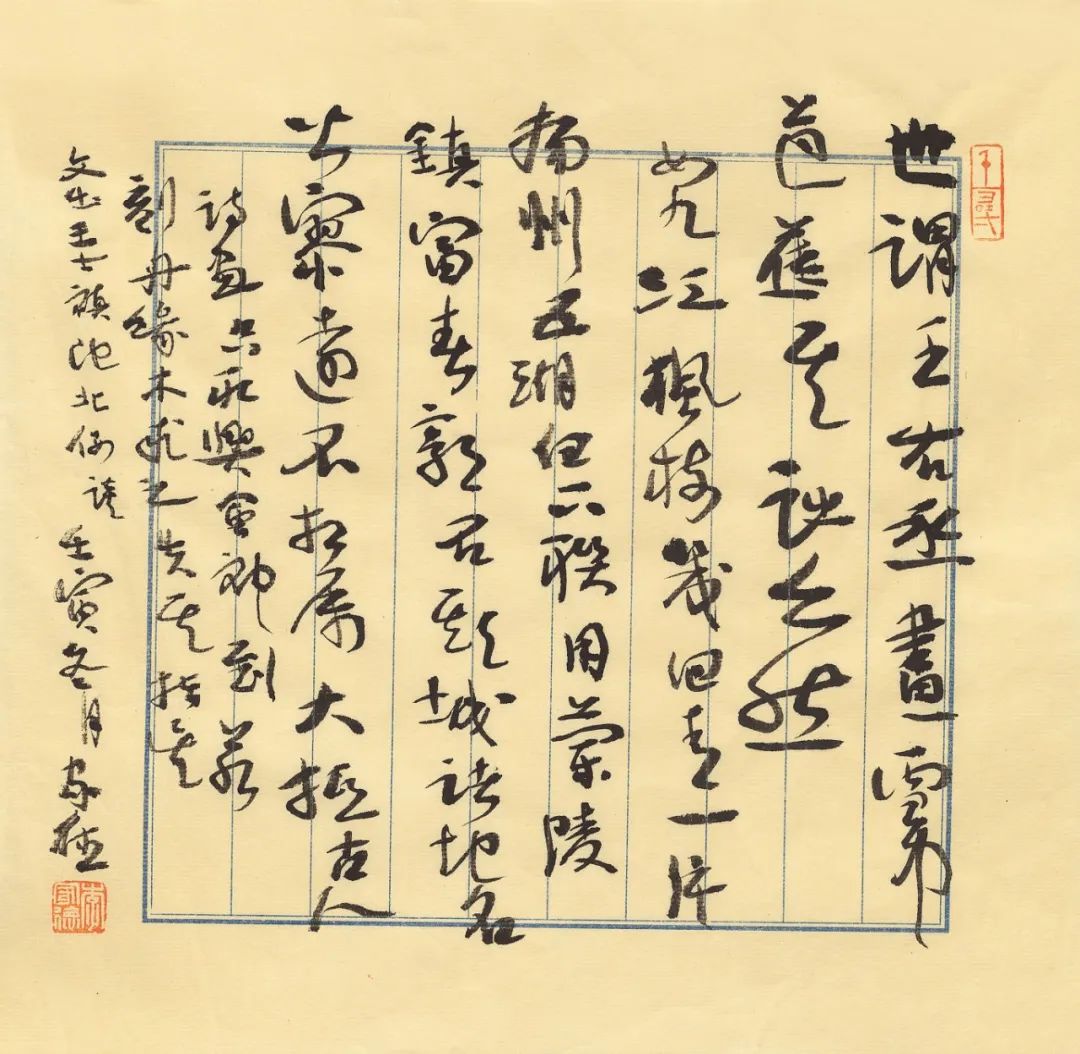 世謂王右丞畫雪中
芭蕉其詩亦然
如九江楓樹幾回青一片
揚州五湖白下聯用蘭陵
鎮富春郭石頭城諸地名
皆寥遠不相屬大抵古人
詩畫只取興會神到若
刻舟緣木求之失其指矣
文出王士禛池北偶談 壬寅冬月 家